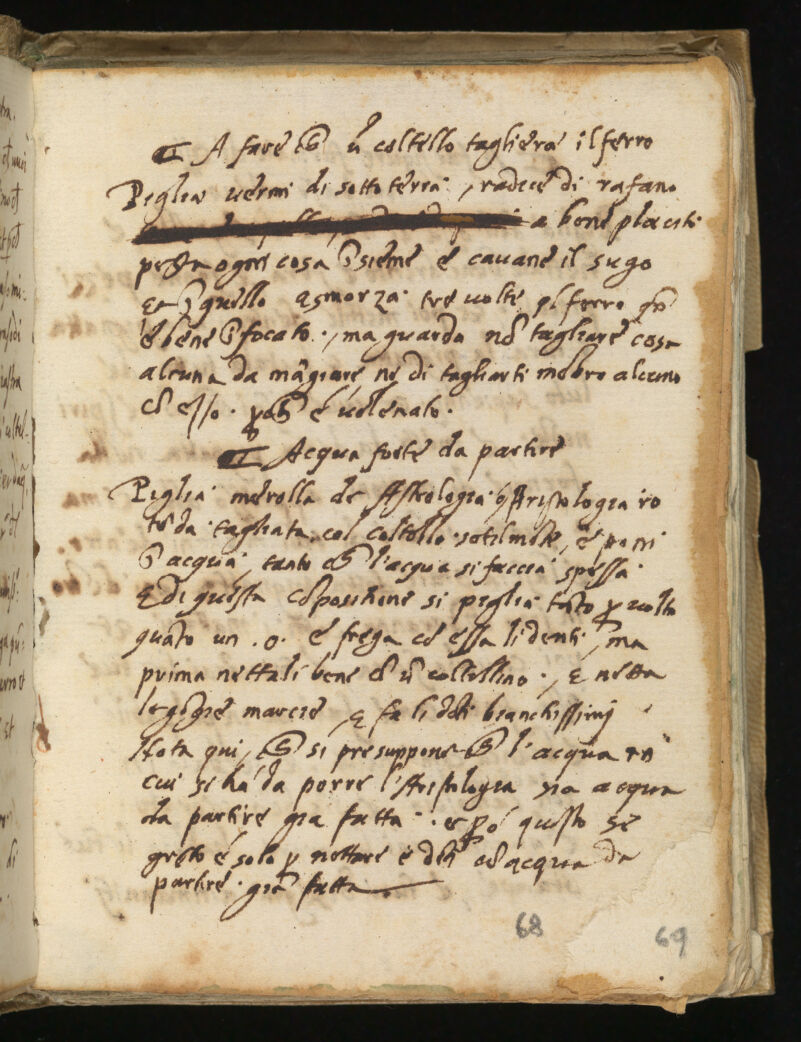 A fare ch̃ ũ coltello tagliera il ferro
Peglia vermi di sotto terra, radice di rafano
a bene placiti
pesta ogni cosa ĩsieme e cavane il sugo
Et ĩ quello asmorza tre volte il ferro qñ
è bene ĩfocato, ma guarda nõ tagliare cosa
alcuna da mãgiare ne di tagliarti mẽbro alcuno
cõ esso. ꝑch̃ é velenato.
Acqua forte da partire
Peglia merolla de Astrologia o Aristologia ro
tõda tagliata col coltello sotilmẽte, e poni
ĩ acqua, tanto ch̃ l'acqua si faccia spessa
E di questa cõpositione si peglia
quãto un .o. e frega cõ essa li denti, ma
prima nettali bene cõ ũ coltellino, E netta
le gẽgie marcie, E fa li dẽti bianchissimi
Nota qui, ch̃ si presuppone ch̃ l'acqua in
cui si ha da porre l'Aristologia sia acqua
da partire gia fatta. e ꝑó questo se
greto è solo ꝑ nettare e dẽti cõ acqua da
partire gia fatta
68
69